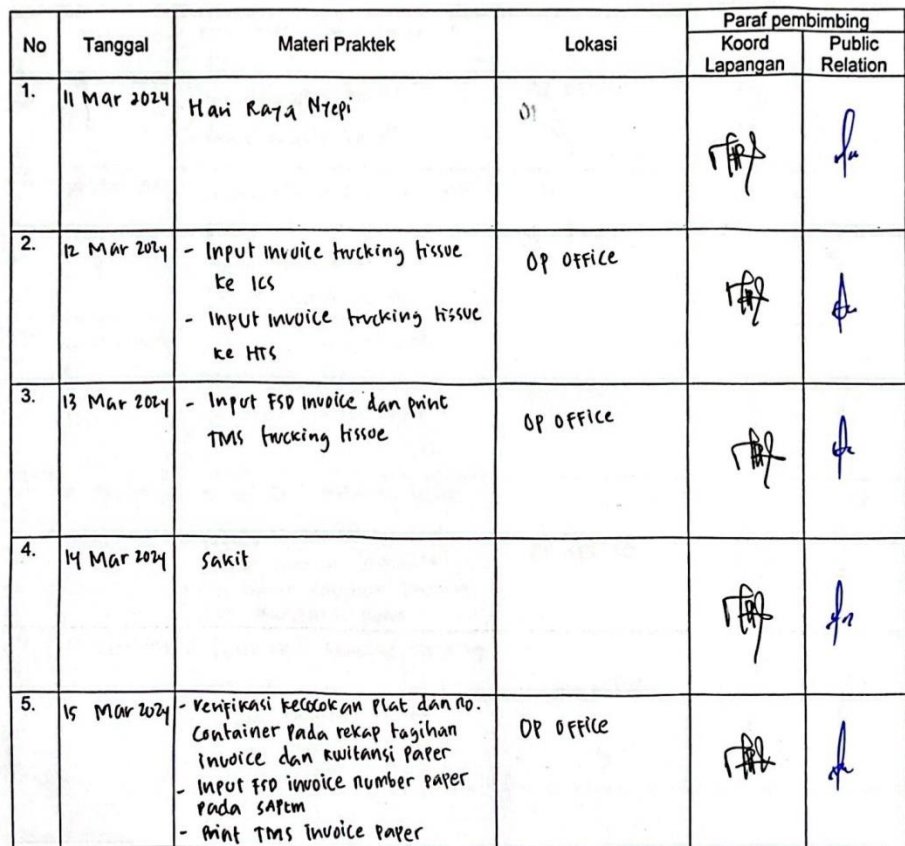 No Tanggal Materi Praktek Lokasi Paraf pembimbing
Koord Lapangan Public Relation
1. 11 Mar 2024 Hari Raya Nyepi
2. 12 Mar 2024 - Input invoice trucking tissue OP OFFICE
ke ICS
- Input invoice trucking tissue
ke HTS
3. 13 Mar 2024 - Input FSD invoice dan print OP OFFICE
TMS trucking tissue
4. 14 Mar 2024 Sakit
5. 15 Mar 2024 - Verifikasi kecocokan plat dan no. OP OFFICE
Container pada rekap tagihan
invoice dan kwitansi paper
- Input FSD invoice number paper
pada SAPtm
- Print TMS invoice paper